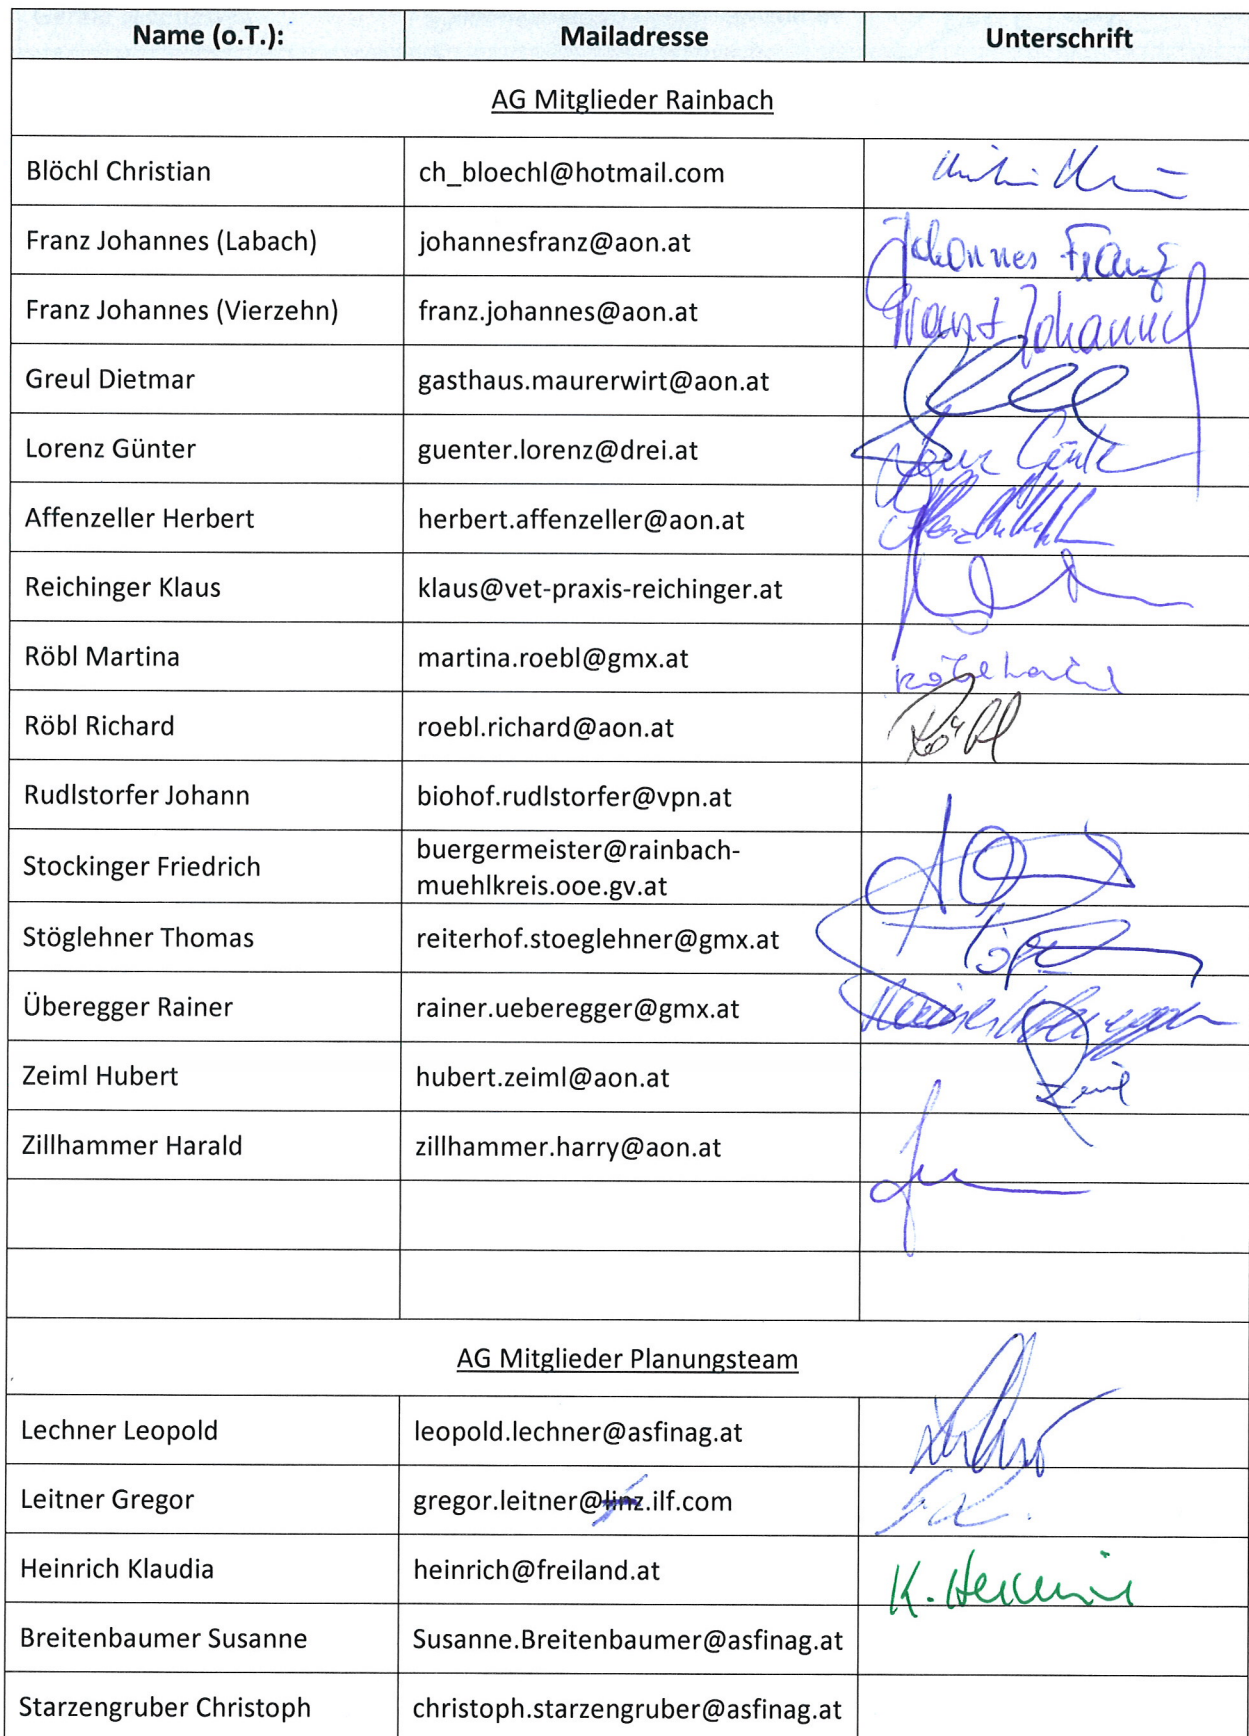 Name (o.T.): Mailadresse Unterschrift
AG Mitglieder Rainbach
Blöchl Christian ch_bloechl@hotmail.com
Franz Johannes (Labach) johannesfranz@aon.at Johannes Franz
Franz Johannes (Vierzehn) franz.johannes@aon.at Franz Johannes
Greul Dietmar gasthaus.maurerwirt@aon.at
Lorenz Günter guenter.lorenz@drei.at
Affenzeller Herbert herbert.affenzeller@aon.at
Reichinger Klaus klaus@vet-praxis-reichinger.at
Röbl Martina martina.roebl@gmx.at
Röbl Richard roebl.richard@aon.at Röbl
Rudlstorfer Johann biohof.rudlstorfer@vpn.at
Stockinger Friedrich buergermeister@rainbach-
muehlkreis.ooe.gv.at
Stöglehner Thomas reiterhof.stoeglehner@gmx.at
Überegger Rainer rainer.ueberegger@gmx.at
Zeiml Hubert hubert.zeiml@aon.at
Zillhammer Harald zillhammer.harry@aon.at
AG Mitglieder Planungsteam
Lechner Leopold leopold.lechner@asfinag.at
Leitner Gregor gregor.leitner@linz.ilf.com
Heinrich Klaudia heinrich@freiland.at
Breitenbaumer Susanne Susanne.Breitenbaumer@asfinag.at
Starzengruber Christoph christoph.starzengruber@asfinag.at